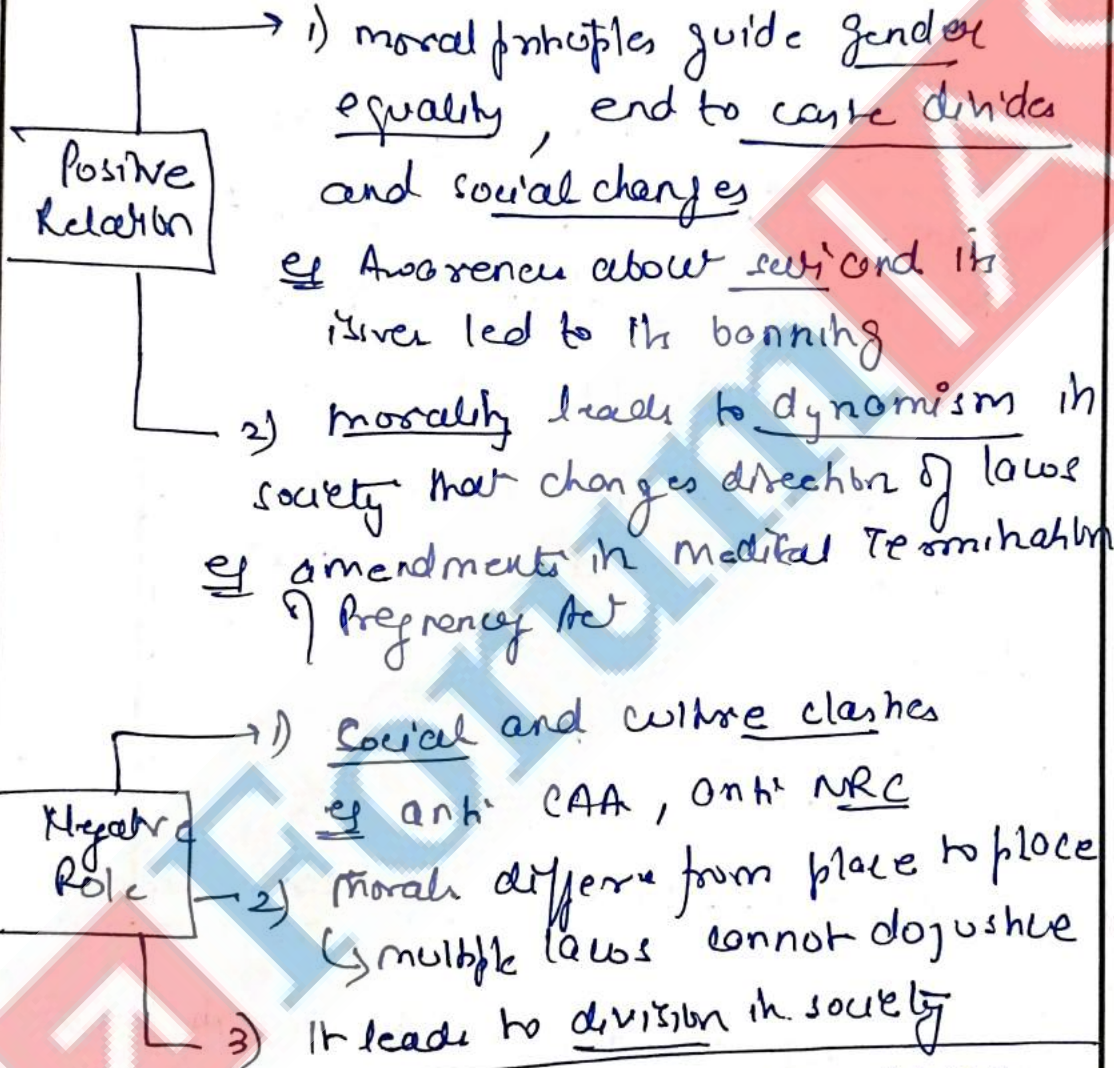 1) moral principles guide gender
equality, end to caste divides
and social changes
Positive
Relation
eg Awareness about sati and its
issues led to its banning
2) morality leads to dynamism in
society that changes direction of laws
eg amendments in Medical Termination
of Pregnancy Act
1) Social and culture clashes
Negative
Role
eg anti CAA, anti NRC
2) Morals differ from place to place
↳ multiple laws cannot do justice
3) It leads to division in society
Forum IAS